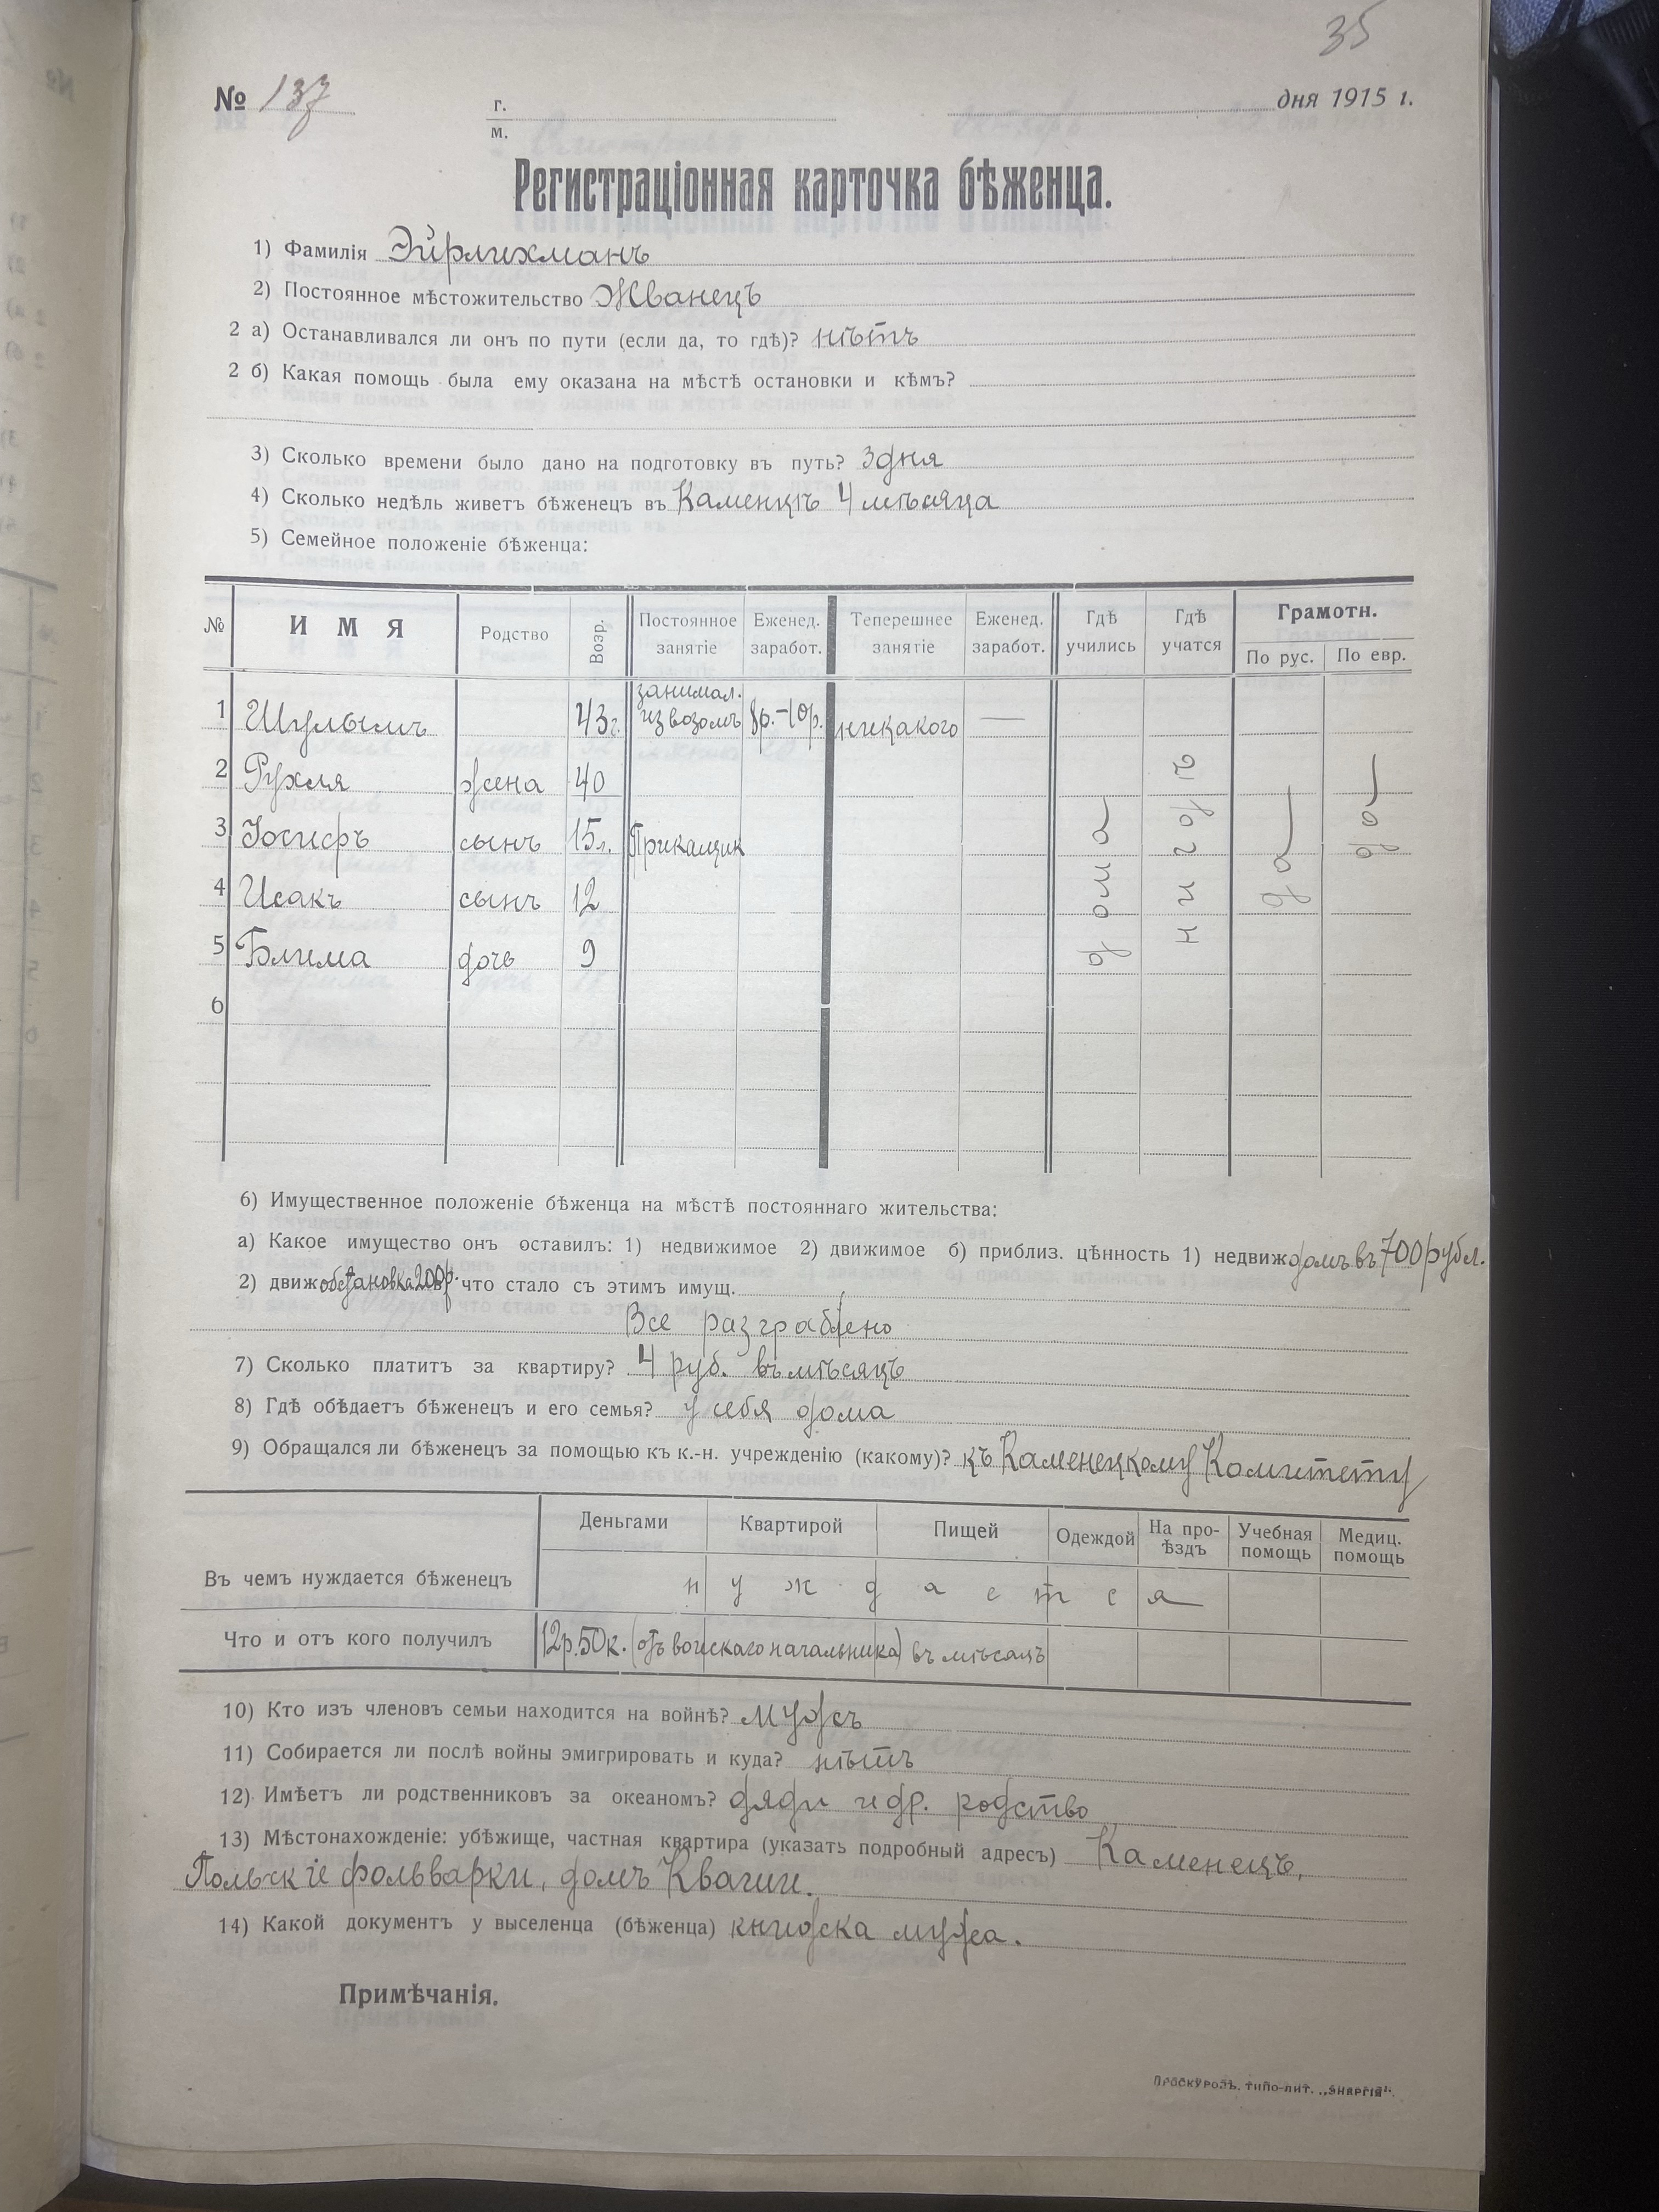 35
№ 137 г. м. дня 1915 г.
Регистраціонная карточка бѣженца.
1) Фамилія Эйрлихманъ
2) Постоянное мѣстожительство Жванецъ
2 а) Останавливался ли онъ по пути (если да, то гдѣ)? нѣтъ
2 б) Какая помощь была ему оказана на мѣстѣ остановки и кѣмъ?
3) Сколько времени было дано на подготовку въ путь? 3 дня
4) Сколько недѣль живетъ бѣженецъ въ Каменцѣ 4 мѣсяца
5) Семейное положеніе бѣженца:
№ ИМЯ Родство Возр. Постоянное занятіе Еженед. заработ. Теперешнее занятіе Еженед. заработ. Гдѣ учились Гдѣ учатся Грамотн. По рус. По евр.
1 Шулымъ 43 г. занимал. извозомъ 8р.-10р. никакого —
2 Рухля жена 40
3 Іосифъ сынъ 15 л. Прикащик
4 Исакъ сынъ 12
5 Блима дочь 9
6
дома нигдѣ да да
6) Имущественное положеніе бѣженца на мѣстѣ постояннаго жительства:
а) Какое имущество онъ оставилъ: 1) недвижимое 2) движимое б) приблиз. цѣнность 1) недвиж домъ въ 700 рубл.
2) движ обстановка 200р. что стало съ этимъ имущ.
Все разграблено
7) Сколько платитъ за квартиру? 4 руб. въ мѣсяцъ
8) Гдѣ обѣдаетъ бѣженецъ и его семья? у себя дома
9) Обращался ли бѣженецъ за помощью къ к.-н. учрежденію (какому)? къ Каменецкому Комитету
Деньгами Квартирой Пищей Одеждой На про-ѣздъ Учебная помощь Медиц. помощь
Въ чемъ нуждается бѣженецъ нуждается
Что и отъ кого получилъ 12р.50к. (отъ воинскаго начальника) въ мѣсяцъ
10) Кто изъ членовъ семьи находится на войнѣ? мужъ
11) Собирается ли послѣ войны эмигрировать и куда? нѣтъ
12) Имѣетъ ли родственниковъ за океаномъ? дяди и др. родство
13) Мѣстонахожденіе: убѣжище, частная квартира (указать подробный адресъ) Каменецъ,
Польскіе фольварки, домъ Квачии.
14) Какой документъ у выселенца (бѣженца) книжска мужа.
Примѣчанія.
Проскуровъ, типо-лит. „Энергія“.